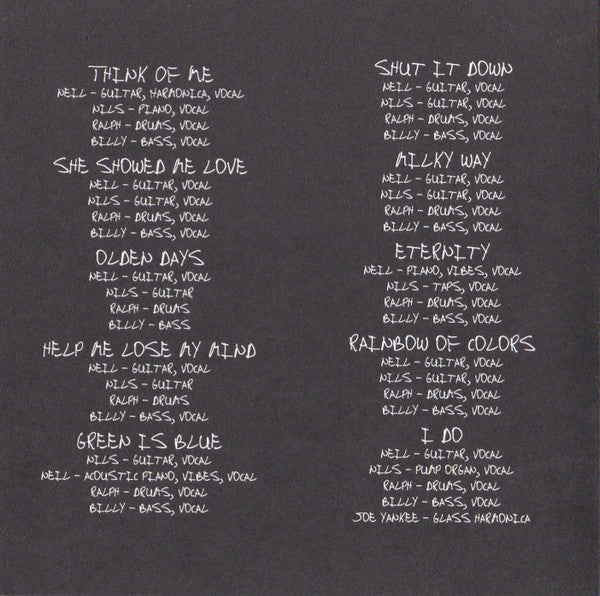 THINK OF ME
NEIL – GUITAR, HARMONICA, VOCAL
NILS – PIANO, VOCAL
RALPH – DRUMS, VOCAL
BILLY – BASS, VOCAL
SHE SHOWED ME LOVE
NEIL – GUITAR, VOCAL
NILS – GUITAR, VOCAL
RALPH – DRUMS, VOCAL
BILLY – BASS, VOCAL
OLDEN DAYS
NEIL – GUITAR, VOCAL
NILS – GUITAR
RALPH – DRUMS
BILLY – BASS
HELP ME LOSE MY MIND
NEIL – GUITAR, VOCAL
NILS – GUITAR
RALPH – DRUMS
BILLY – BASS, VOCAL
GREEN IS BLUE
NILS – GUITAR, VOCAL
NEIL – ACOUSTIC PIANO, VIBES, VOCAL
RALPH – DRUMS, VOCAL
BILLY – BASS, VOCAL
SHUT IT DOWN
NEIL – GUITAR, VOCAL
NILS – GUITAR, VOCAL
RALPH – DRUMS, VOCAL
BILLY – BASS, VOCAL
MILKY WAY
NEIL – GUITAR, VOCAL
NILS – GUITAR, VOCAL
RALPH – DRUMS, VOCAL
BILLY – BASS, VOCAL
ETERNITY
NEIL – PIANO, VIBES, VOCAL
NILS – TAPS, VOCAL
RALPH – DRUMS, VOCAL
BILLY – BASS, VOCAL
RAINBOW OF COLORS
NEIL – GUITAR, VOCAL
NILS – GUITAR, VOCAL
RALPH – DRUMS, VOCAL
BILLY – BASS, VOCAL
I DO
NEIL – GUITAR, VOCAL
NILS – PUMP ORGAN, VOCAL
RALPH – DRUMS, VOCAL
BILLY – BASS, VOCAL
JOE YANKEE – GLASS HARMONICA